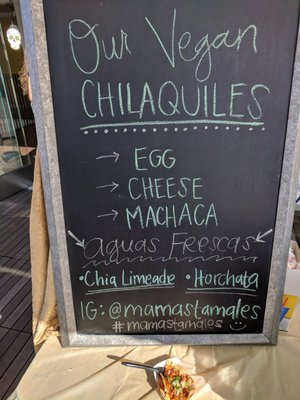 Our Vegan
CHILAQUILES
→ EGG
→ CHEESE
→ MACHACA
aguas Frescas
• Chia Limeade • Horchata
IG: @mamastamales
#mamastamales